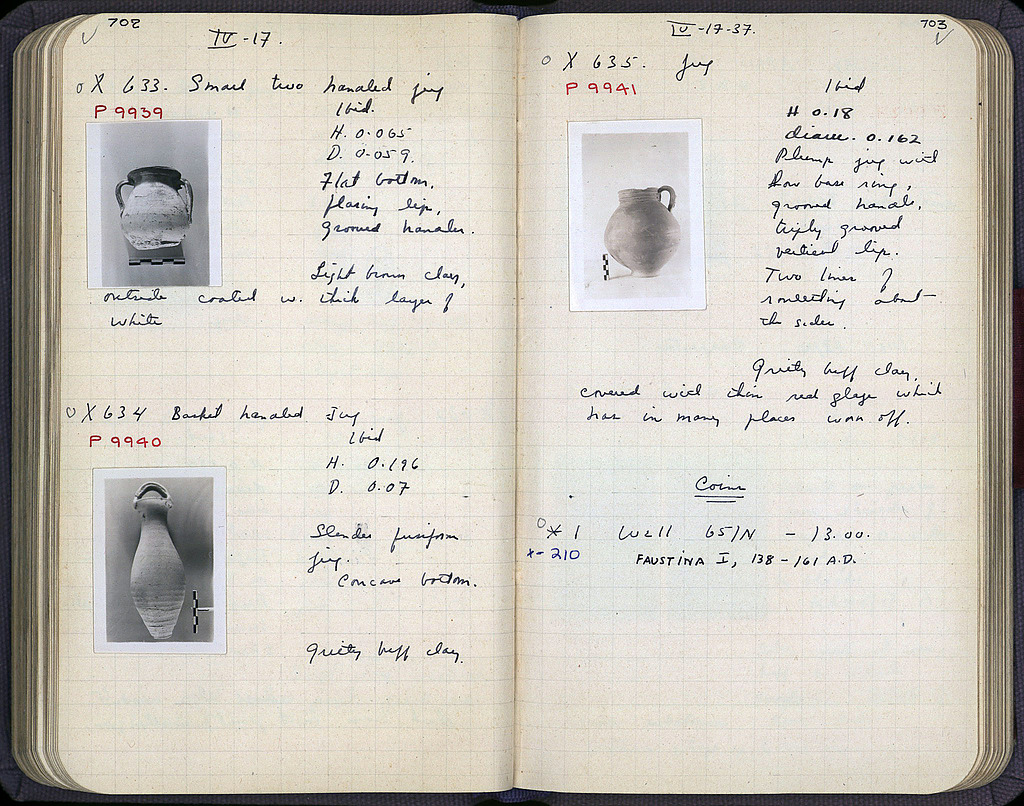 702
IV-17.
X 633. Small two handled jug
P 9939
Ibid.
H. 0.065
D. 0.059.
Flat bottom,
flaring lip,
grooved handles.
Light brown clay,
outside coated w. thick layer of
white
X 634 Basket handled Jug
P 9940
Ibid
H. 0.196
D. 0.07
Slender fusiform
jug.
Concave bottom.
Gritty buff clay.
703
IV-17-37.
X 635. Jug
P 9941
Ibid
H 0.18
diam. 0.162
Plump jug with
low base ring,
grooved handle,
triply grooved
vertical lip.
Two lines of
rouletting about
the sides.
Gritty buff clay,
covered with thin red glaze which
has in many places worn off.
Coins
* 1 Well 65/N - 13.00.
x-210
FAUSTINA I, 138-161 A.D.